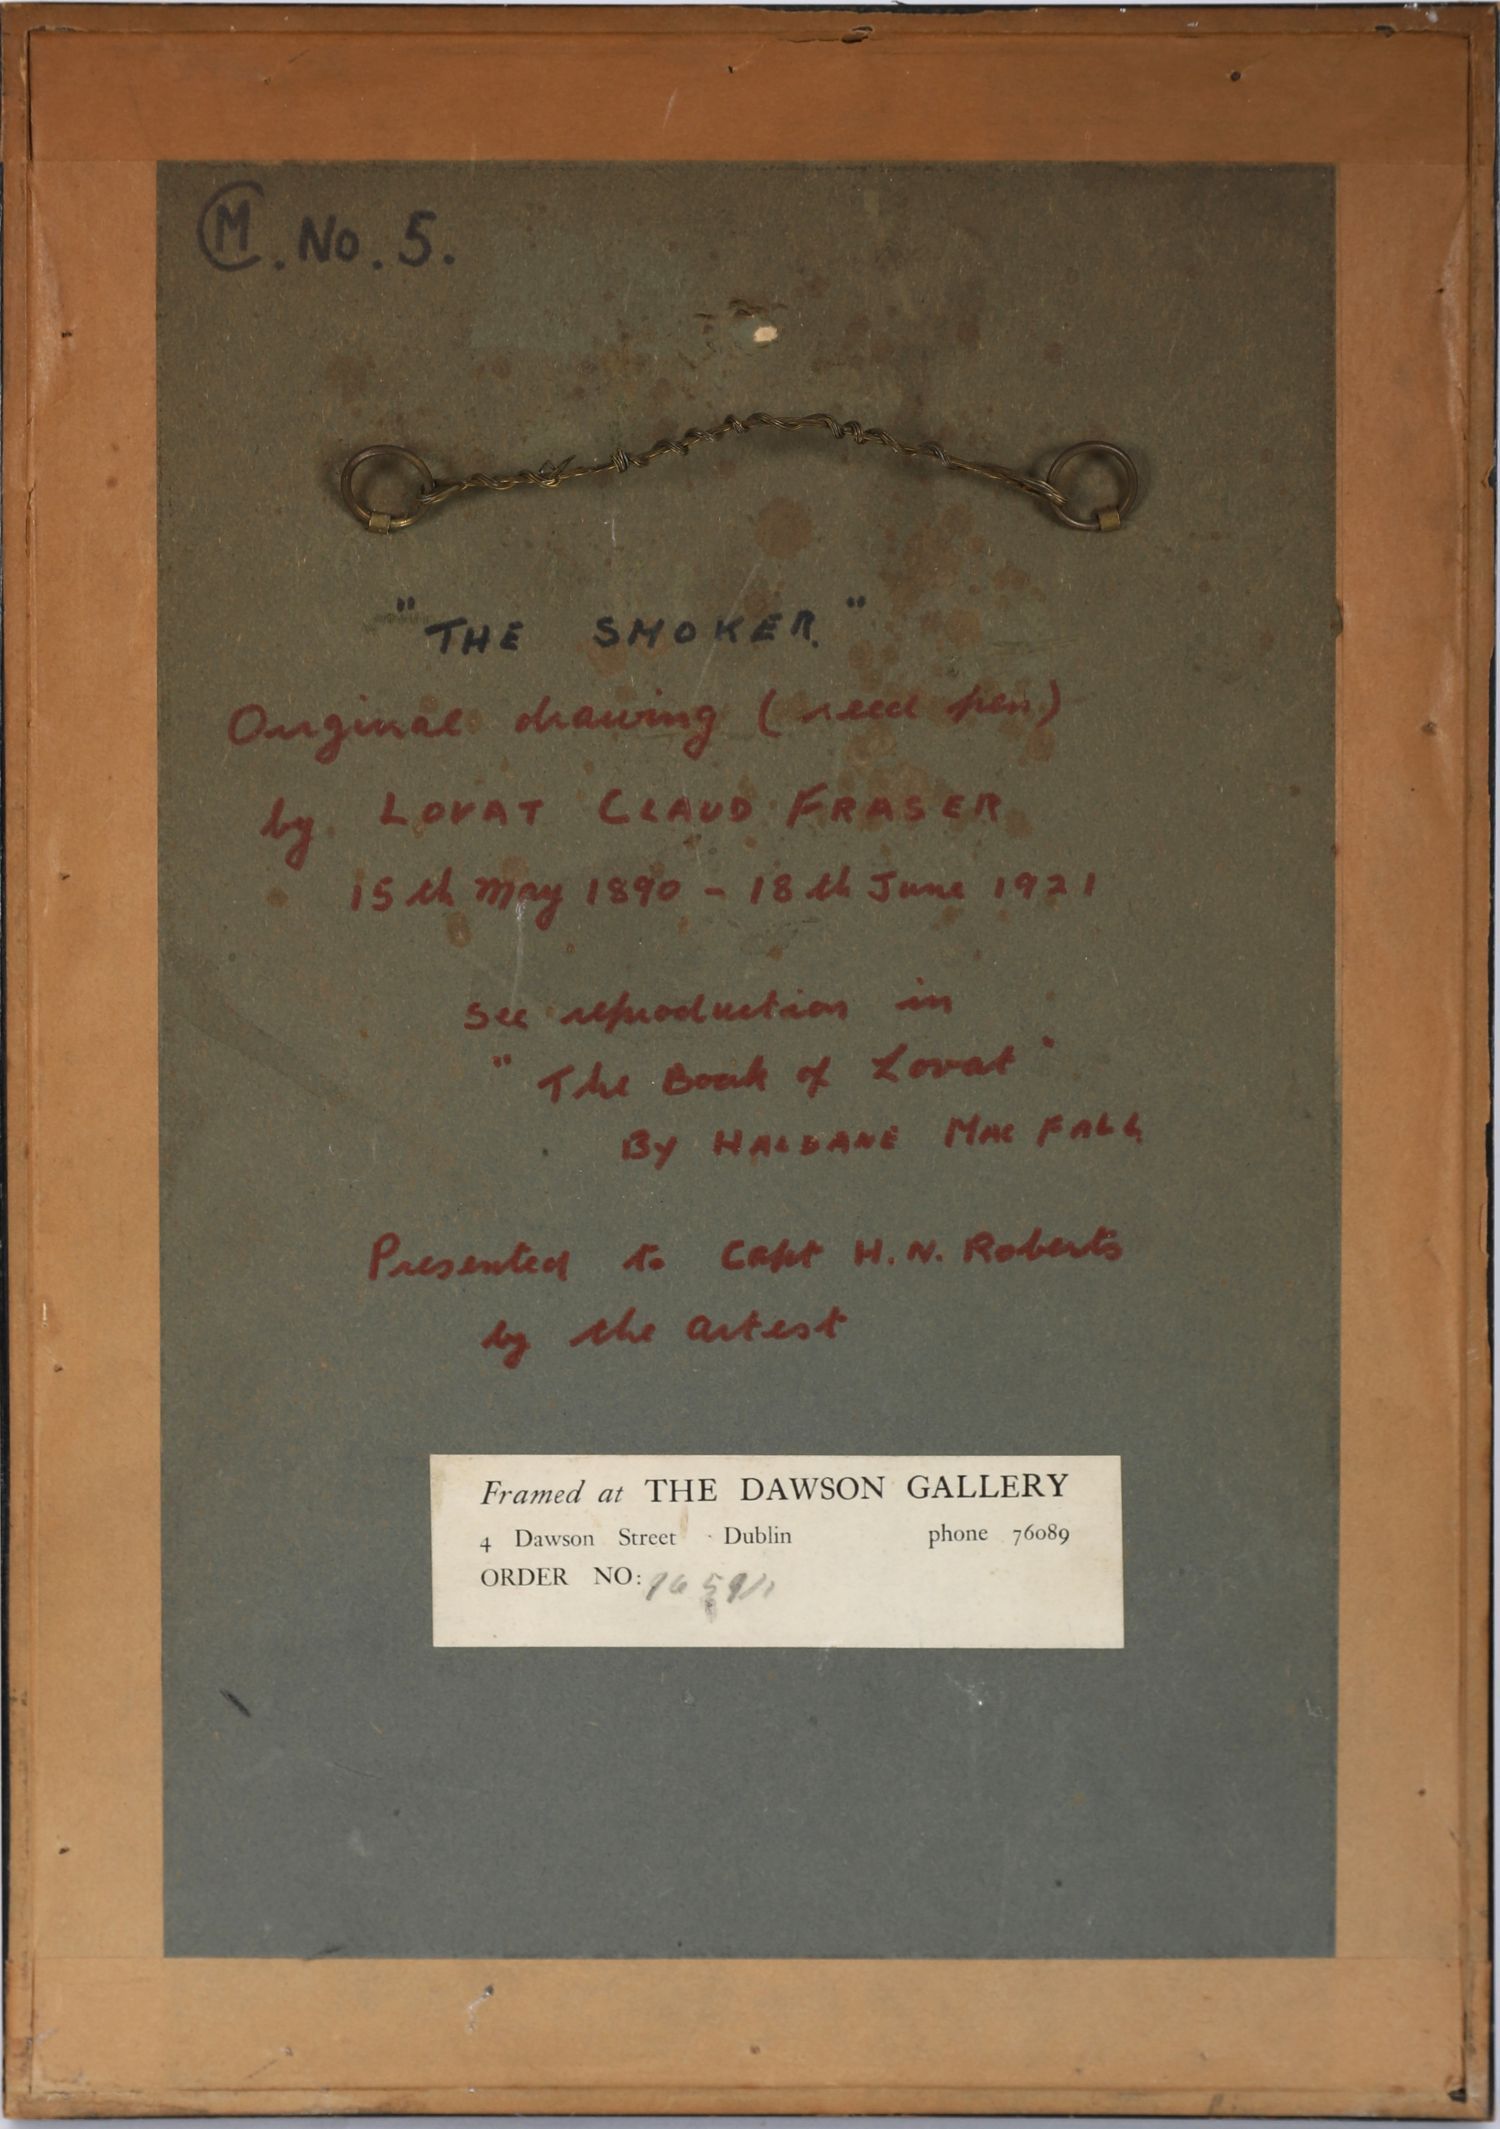 M. No. 5.
"THE SMOKER."
Original drawing (reed pen)
by LOVAT CLAUD FRASER
15th May 1890 - 18th June 1921
See reproduction in
"The Book of Lovat"
By HALDANE MAC FALL
Presented to Capt H. N. Roberts
by the artist
Framed at THE DAWSON GALLERY
4 Dawson Street · Dublin phone 76089
ORDER NO: